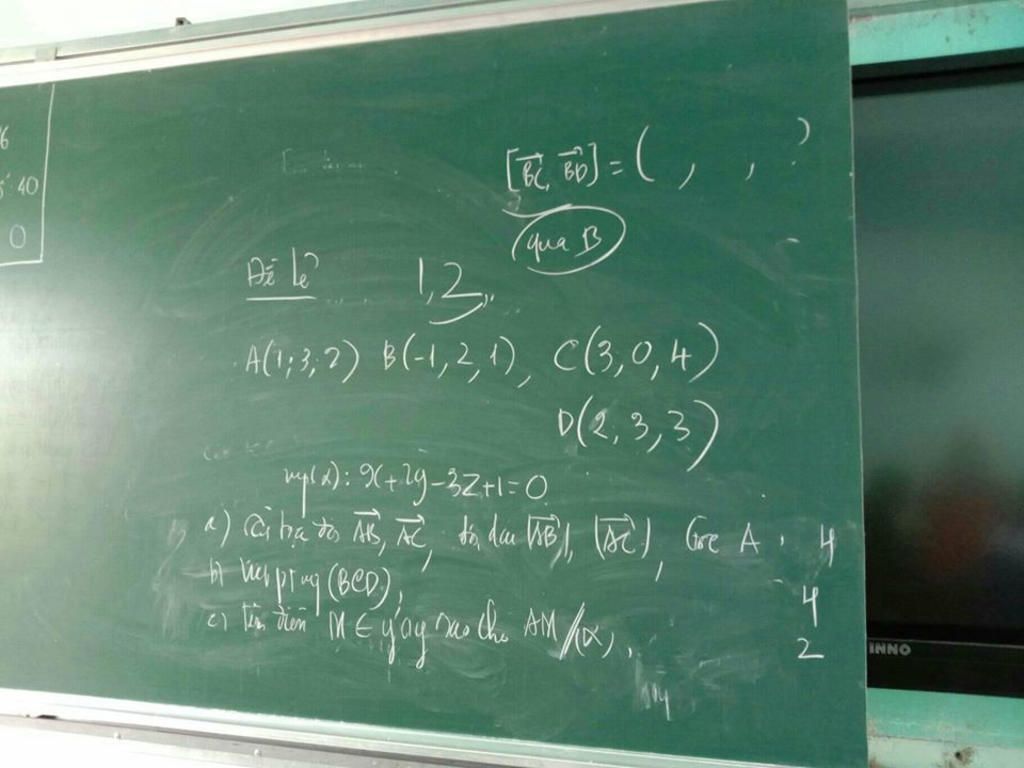 6
40
0
[BC, BD] = ( , , ?
qua B
Đề lẻ
1,2
A(1; 3; 2) B(-1, 2, 1), C(3, 0, 4)
D(2, 3, 3)
mp(α): x + 2y - 3z + 1 = 0
a) AB, AC, |AB|, |AC|, Góc A. 4
b) Viết ptmp (BCD), 4
c) Tìm điểm M ∈ sao cho AM // (α), 2
INNO